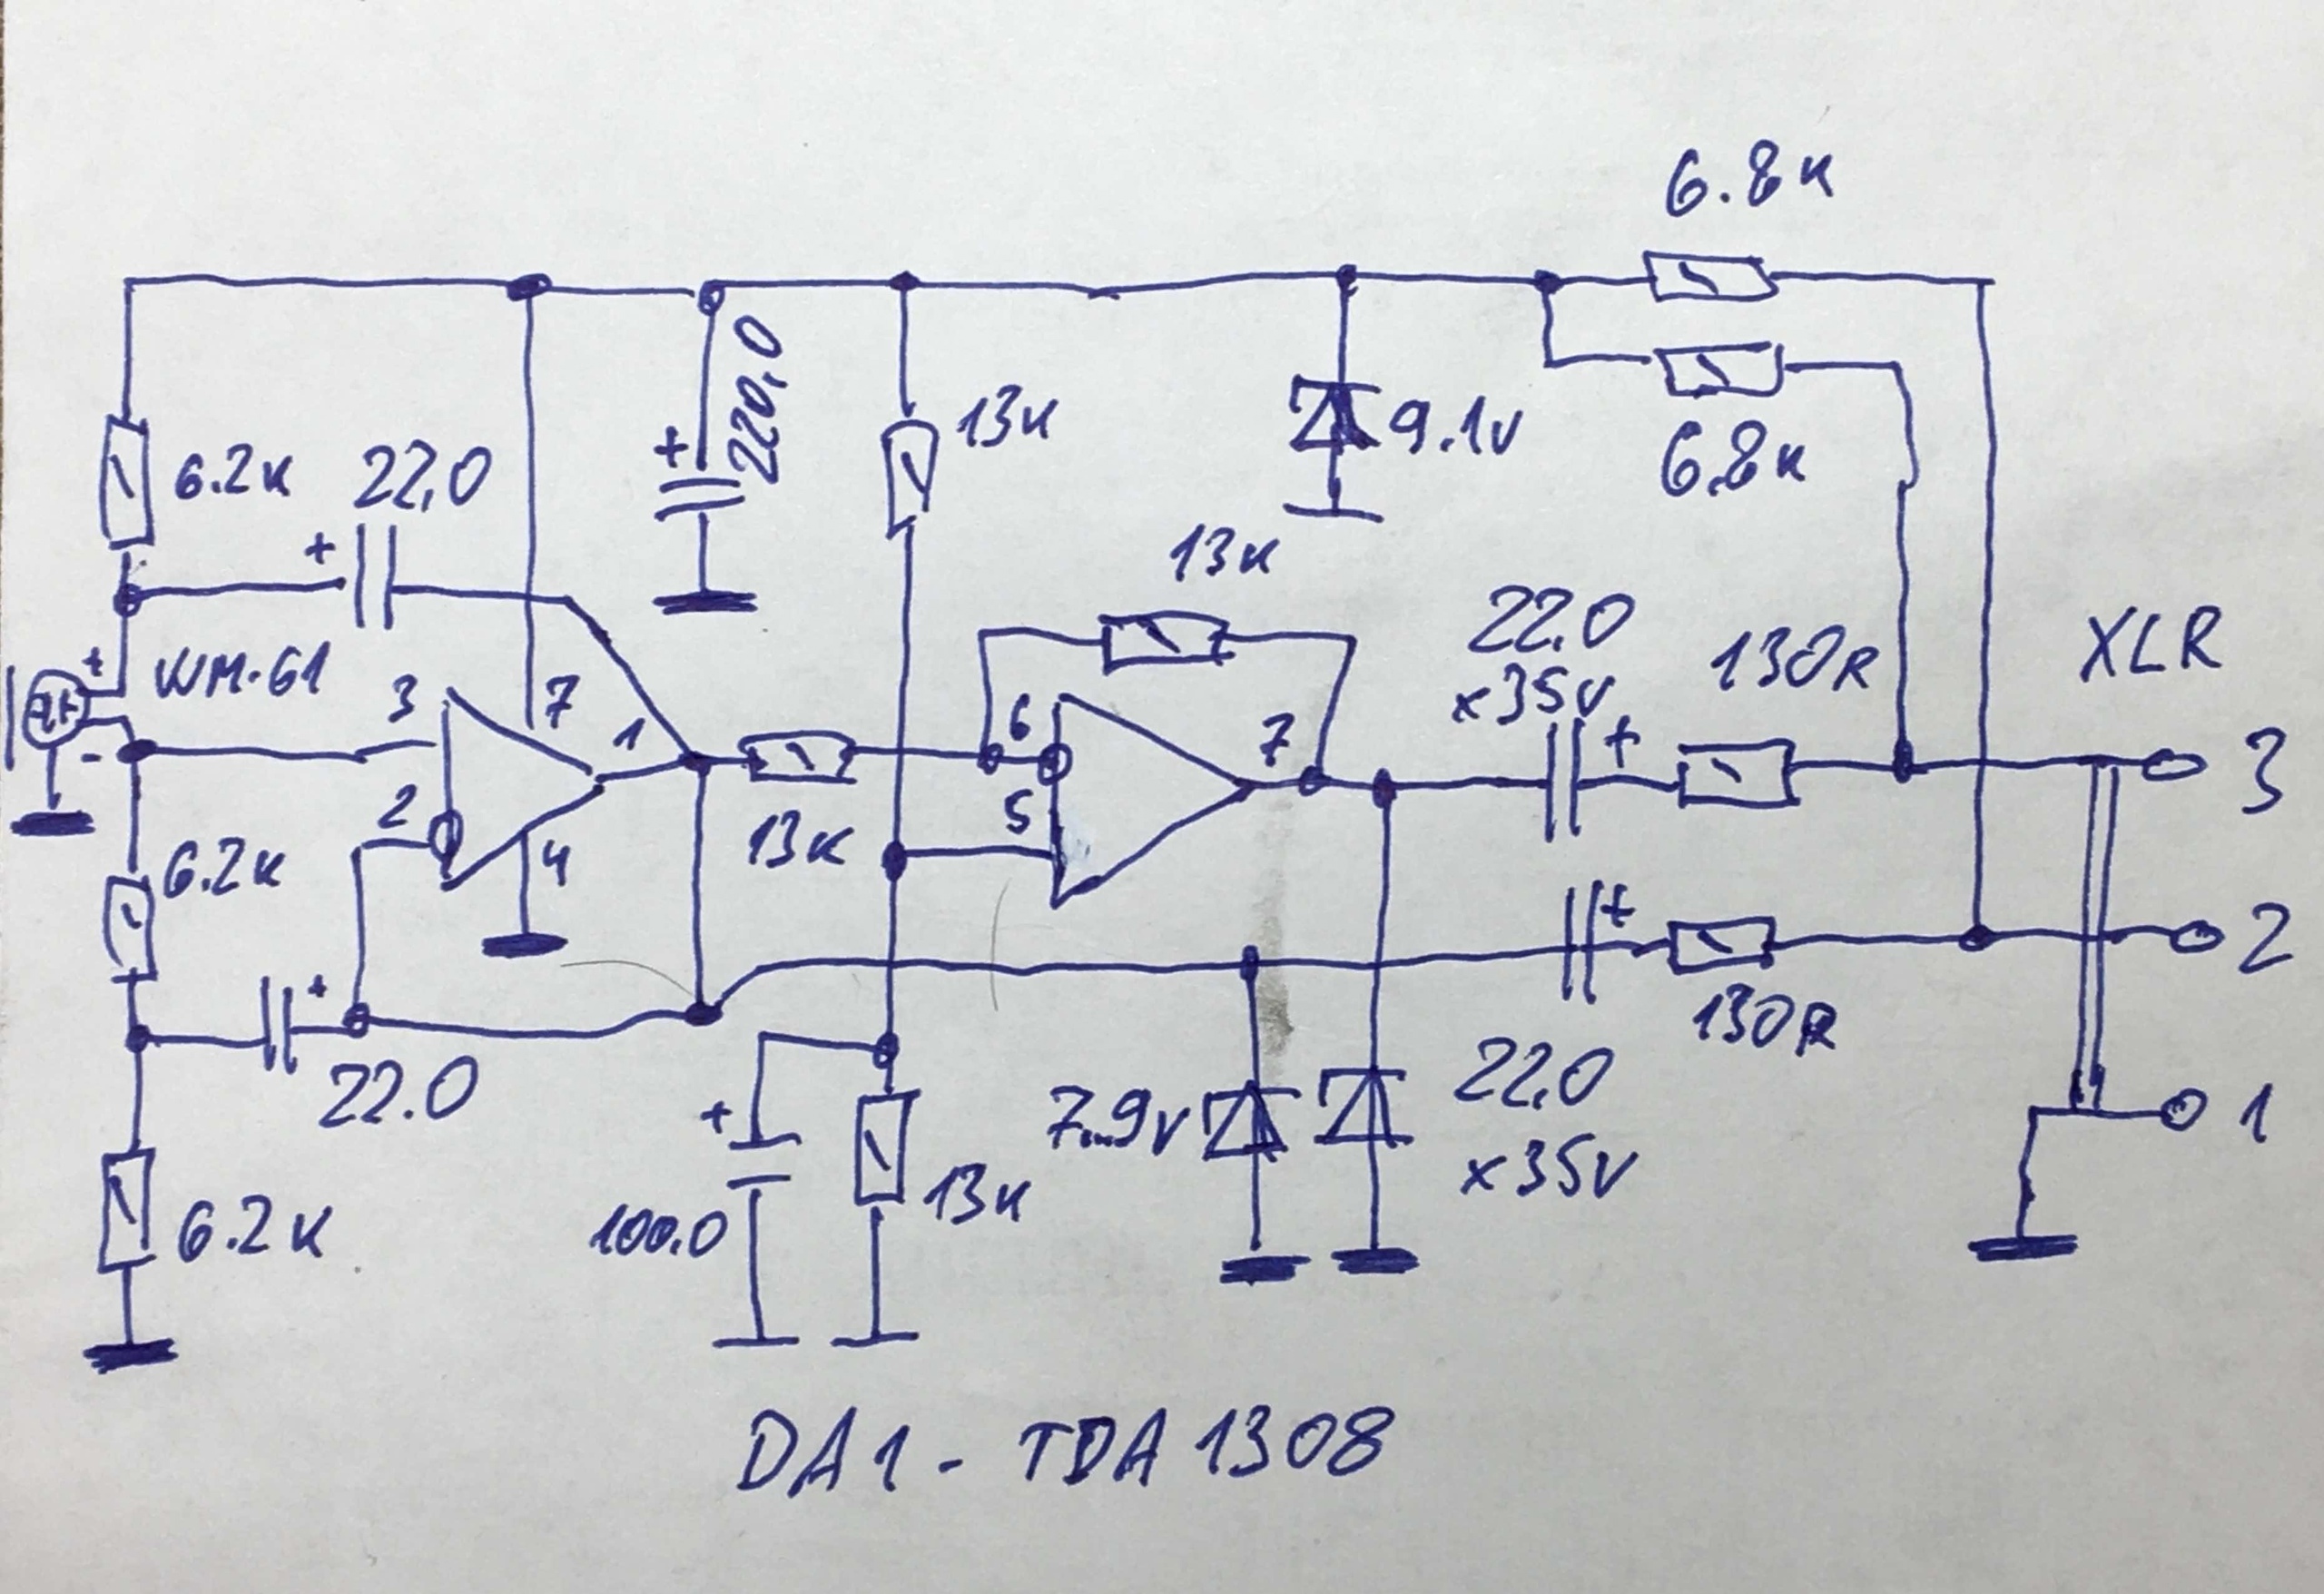 6.8к
220,0
13к
9.1v
6.8к
6.2к
22.0
+
+
13к
22.0
x35v
+
130R
XLR
+
WM-61
3
7
1
6
7
3
-
2
4
13к
5
6.2к
+
+
2
22.0
130R
+
7...9v
22.0
x35v
1
6.2к
100.0
13к
DA1 - TDA1308